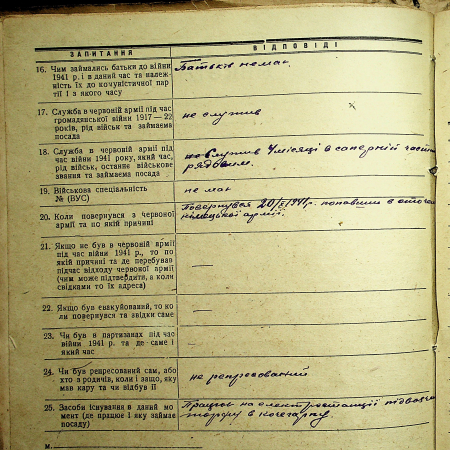 ЗАПИТАННЯ ВІДПОВІДІ
16. Чим займались батьки до війни
1941 р. і в даний час та належ-
ність їх до комуністичної пар-
тії і з якого часу
Батьків немає.
17. Служба в червоній армії під час
громадянської війни 1917—22
років, рід військ та займаема
посада
не служив
18. Служба в червоній армії під
час війни 1941 року, який час,
рід військ, останнє військове
звання та займаема посада
Служив 4 місяці в саперній части
рядовим.
19. Військова спеціальність
№ (ВУС)
не має
20. Коли повернувся з червоної
армії та по якій причині
Повернувся 20/X 1941 р. попавши в оточен
німецької армії.
21. Якщо не був в червоній армії
під час війни 1941 р., то по
якій причині та де перебував
підчас відходу червоної армії
(чим може підтвердити, а коли
свідками то їх адреса)
—
22. Якщо був евакуйований, то ко
ли повернувся та звідки саме
—
23. Чи був в партизанах під час
війни 1941 р. та де саме і
який час
—
24. Чи був репресований сам, або
хто з родичів, коли і защо, яку
мав кару та чи відбув її
не репресований
25. Засоби існування в даний мо
мент (де працює і яку займає
посаду)
Працює на електростанції підвозч
торфу в кочегарку.
м.